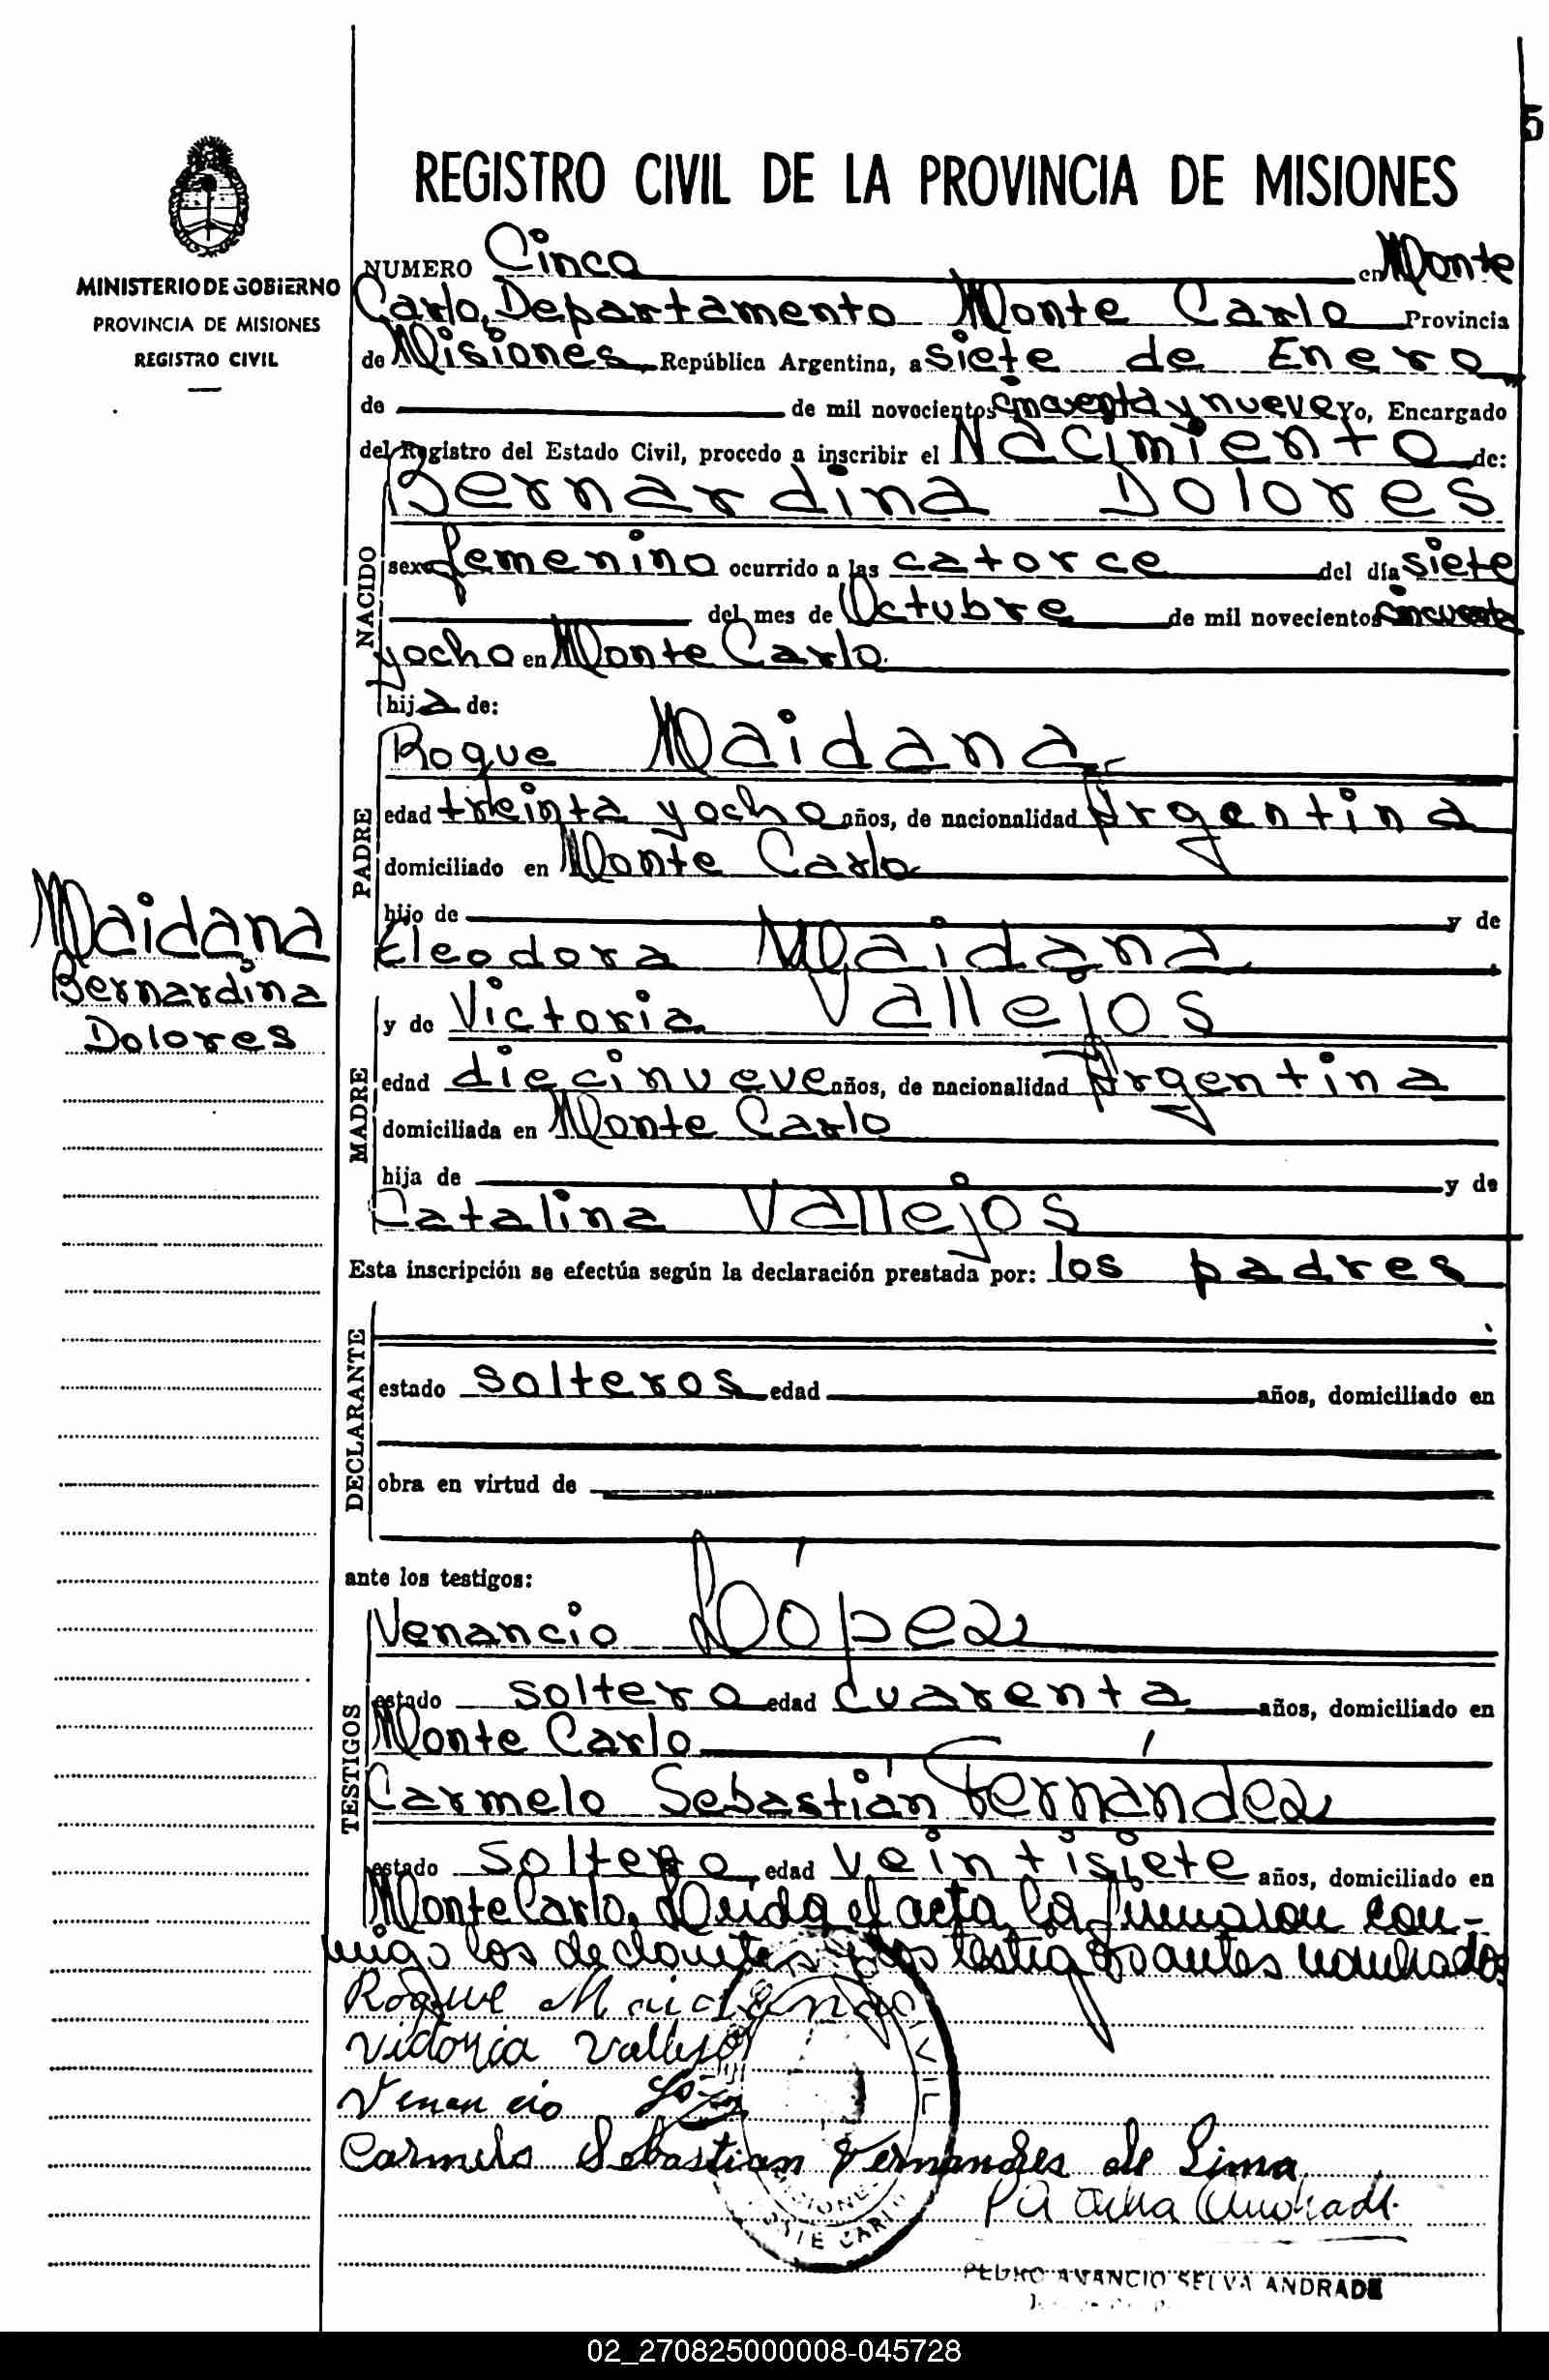 5
REGISTRO CIVIL DE LA PROVINCIA DE MISIONES
MINISTERIO DE GOBIERNO
PROVINCIA DE MISIONES
REGISTRO CIVIL
NUMERO Cinco en Monte
Carlo, Departamento Monte Carlo Provincia
de Misiones República Argentina, a siete de Enero
de de mil novecientos cincuenta y nueve Yo, Encargado
del Registro del Estado Civil, procedo a inscribir el Nacimiento de:
Bernardina Dolores
NACIDO
sexo femenino ocurrido a las catorce del día siete
del mes de Octubre de mil novecientos cincuenta
y ocho en Monte Carlo.
hija de:
Roque Maidana
PADRE
edad treinta y ocho años, de nacionalidad Argentina
domiciliado en Monte Carlo
hijo de y de
Eleodora Maidana
Maidana
Bernardina
Dolores
MADRE
y de Victoria Vallejos
edad diecinueve años, de nacionalidad Argentina
domiciliada en Monte Carlo
hija de y de
Catalina Vallejos
Esta inscripción se efectúa según la declaración prestada por: los padres
DECLARANTE
estado solteros edad años, domiciliado en
obra en virtud de
ante los testigos:
TESTIGOS
Venancio López
estado soltero edad cuarenta años, domiciliado en
Monte Carlo
Carmelo Sebastián Fernández
estado soltero edad veintisiete años, domiciliado en
Monte Carlo. Leída el acta, la firmaron con-
migo los declarantes y los testigos antes nombrados
Roque Maidana
Victoria Vallejo
Venancio
Carmelo Sebastian Fernandes de Lima
Andrade
PEDRO AMANCIO SELVA ANDRADE
CIVIL
MISIONES
MONTE CARLO
02_270825000008-045728